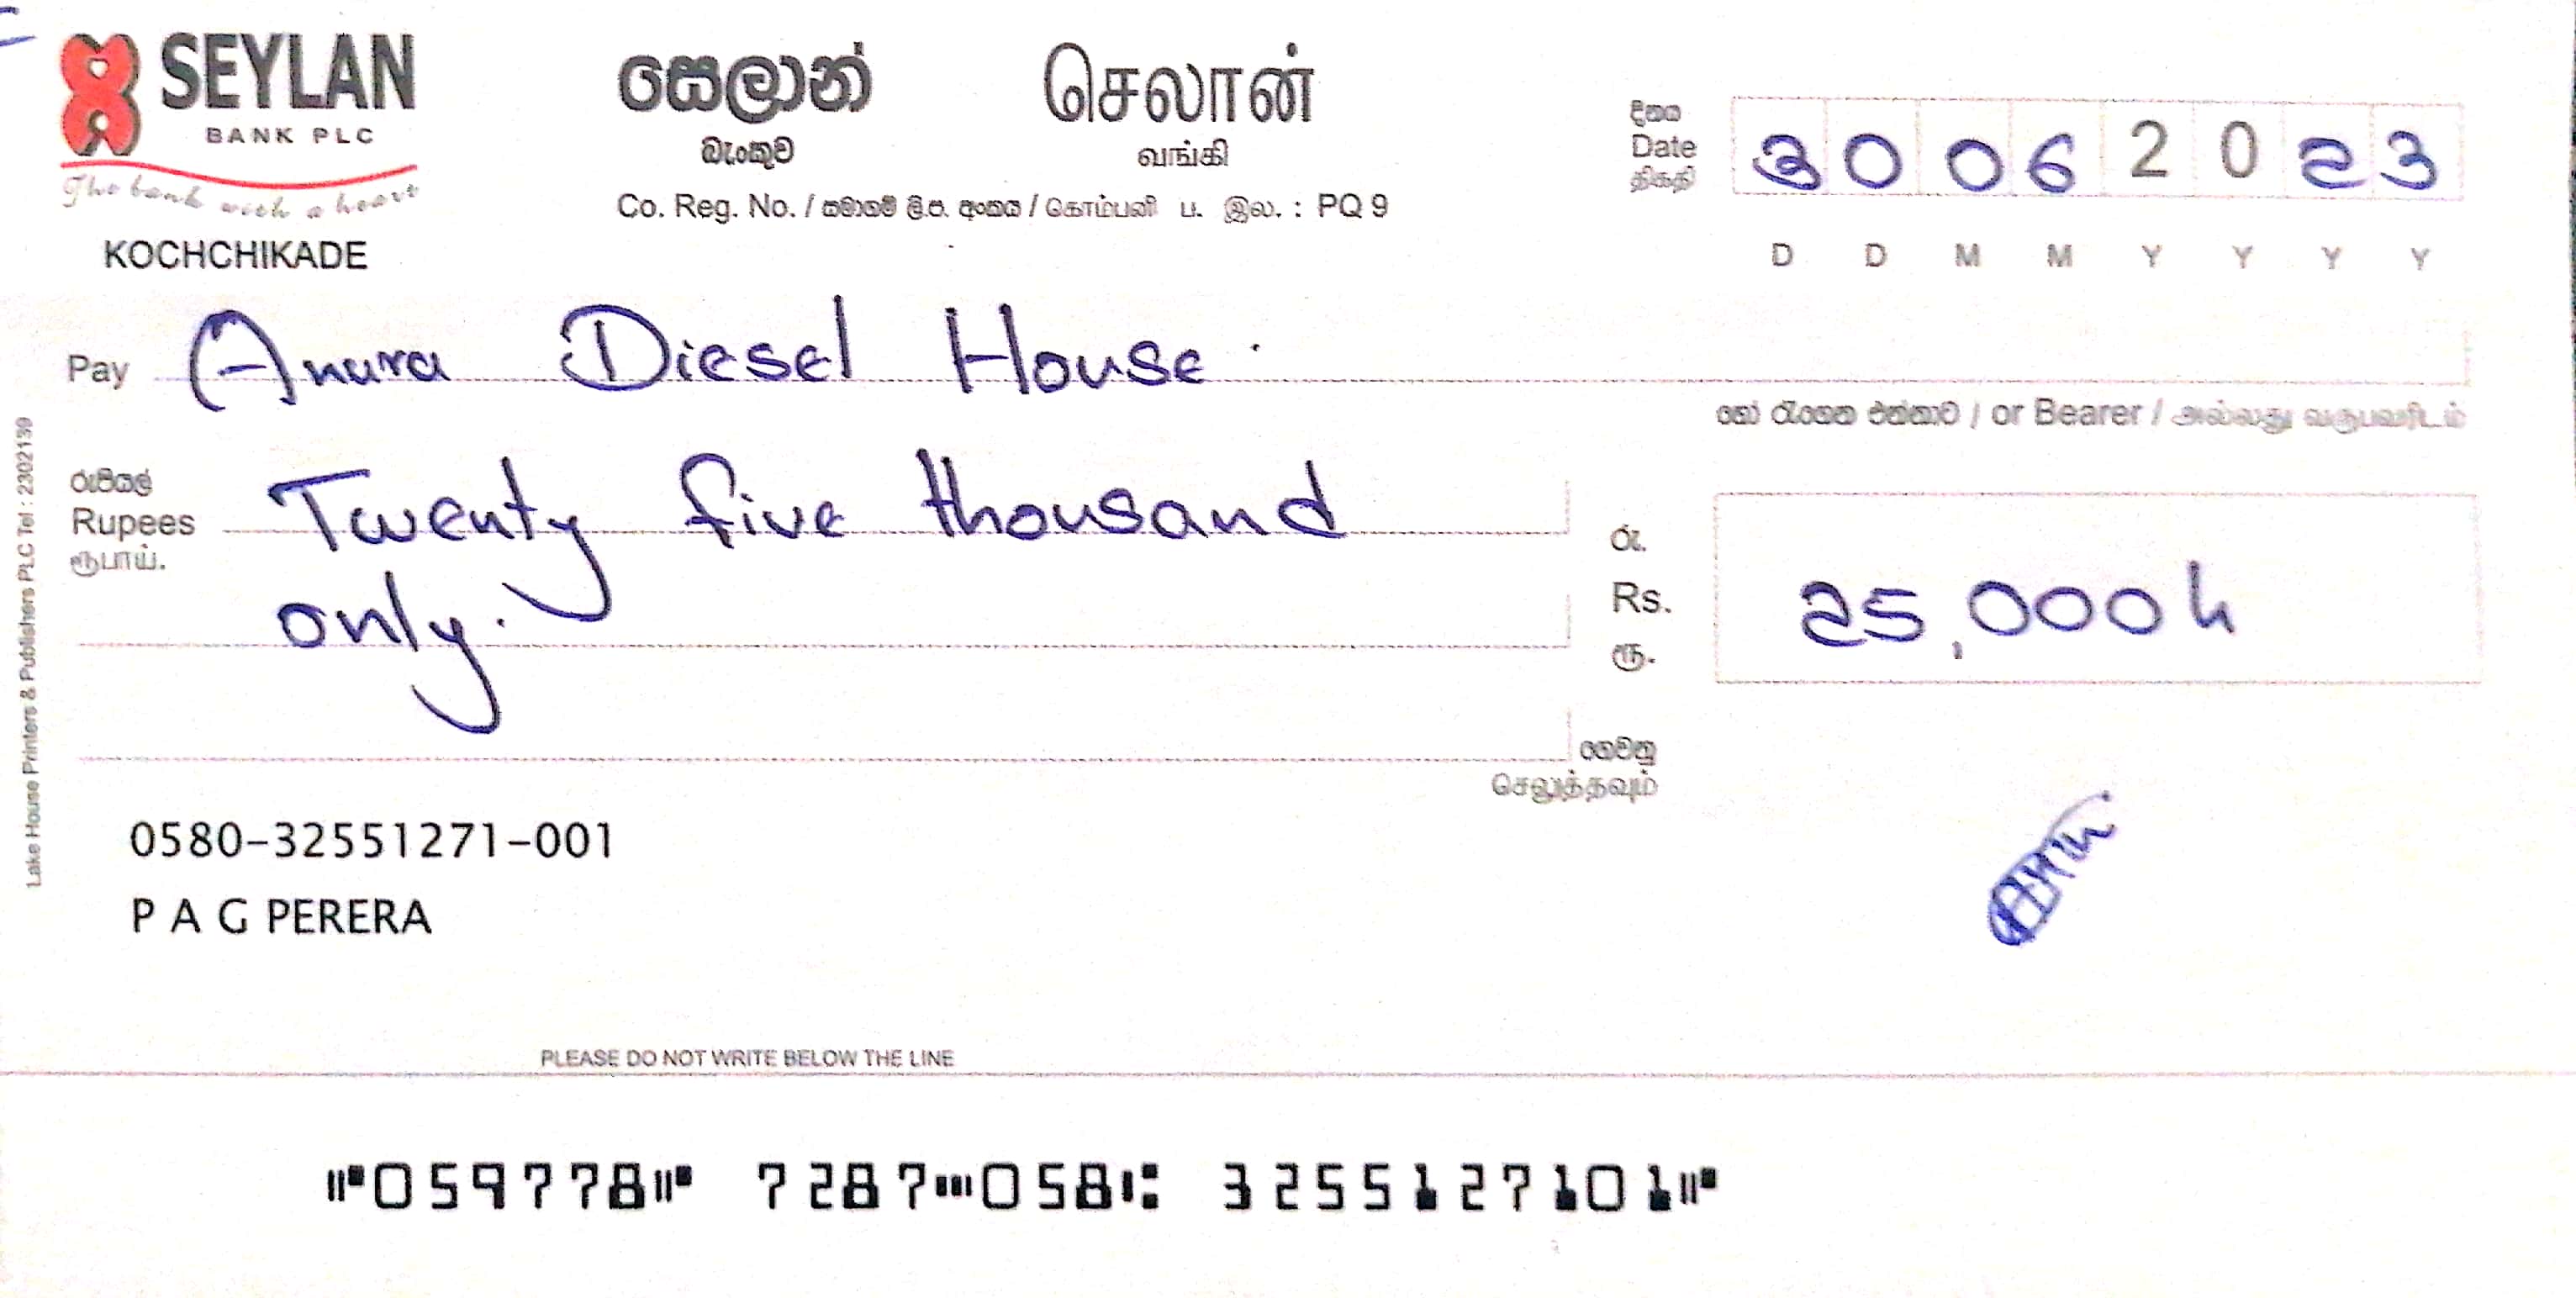 SEYLAN
BANK PLC
The bank with a heart
KOCHCHIKADE
සෙලාන්
බැංකුව
செலான்
வங்கி
Co. Reg. No. / සමාගම් ලි.ප. අංකය / கொம்பனி ப. இல. : PQ 9
දිනය
Date 3 0 0 6 2 0 2 3
திகதி
D D M M Y Y Y Y
Pay Anura Diesel House.
හෝ රැගෙන එන්නාට / or Bearer / அல்லது வருபவரிடம்
රුපියල්
Rupees Twenty five thousand
ரூபாய்.
only.
රු.
Rs. 25,000
ரூ.
ගෙවනු
செலுத்தவும்
Lake House Printers & Publishers PLC Tel : 2302139
0580-32551271-001
P A G PERERA
PLEASE DO NOT WRITE BELOW THE LINE
⑈059778⑈ 7287⑉058⑆ 3255127101⑈